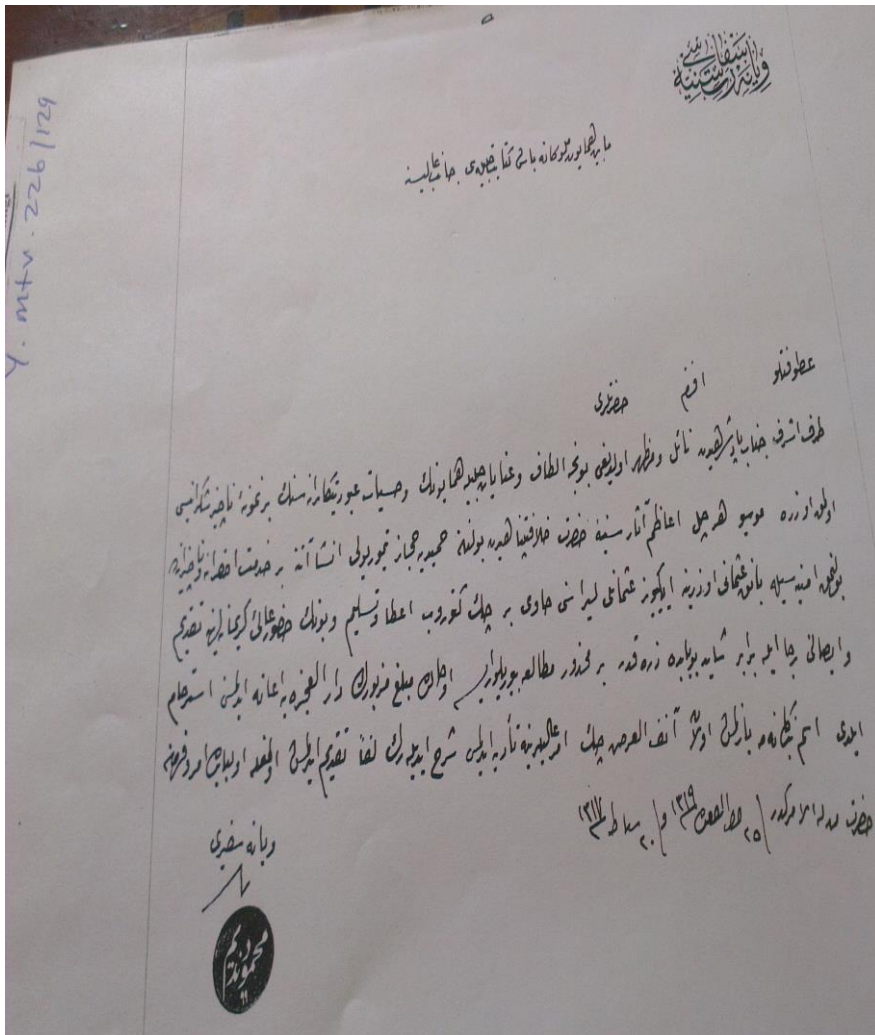 ویانه سفارت سنیه سی
مابین همایون ملوکانه باش کتابت جلیله سی جانب عالیسنه
عطوفتلو افندم حضرتلری
طرف اشرف جناب پادشاهیدن نائل و مظهر اولدیغی بونجه الطاف و عنایات جلیله همایونك و حسیات عبودیتکارانه سنك بر نمونه ناچیز شکرانیسی
اولمق اوزره موسیو اعاظم آثار سنیه حضرت خلافتپناهیدن بولنان حمیدیه حجاز تیمور یولی انشاآتنه بر خدمت
بولنمق امنیه سیله بانق عثمانی اوزرینه ایکیوز عثمانلی لیراسنی حاوی بر چك کتوروب اعطا و تسلیم و بونك حضور عالئ کریمانه لرینه تقدیم
و ایصالنی رجا ایله برابر شاید بوبابده ذره قدر بر محذور مطالعه بیوریلور ایسه اولحالده مبلغ مزبورك دار العجزه یه اعانه ایدلمسنی استرحام
ایلدی اسم یازلمش اولان آنف العرض چك امر عالیلرینه تأدیه ایدلمسی شرح ایدیله رك لفا تقدیم ایدلمش اولمغله اولبابده امر و فرمان
حضرت من له الامرکدر ٢٥ ١٣١٩ و ٢٠ ١٣١٧
ویانه سفیری
محمود ندیم
Y. mtv. 226/129